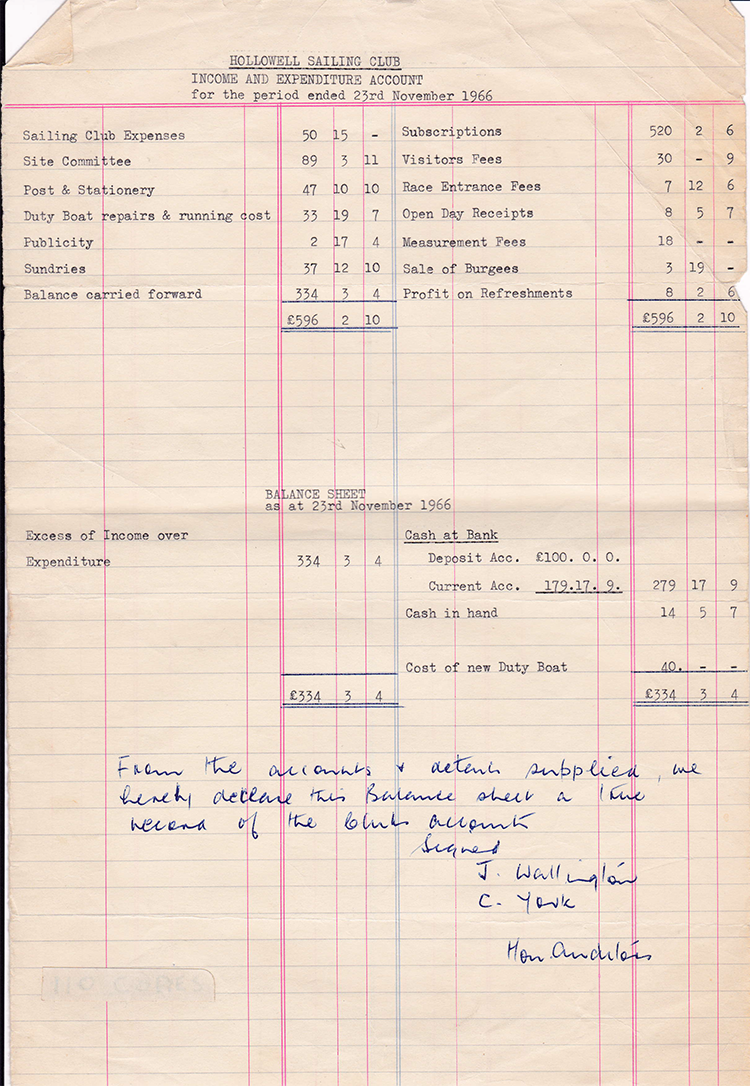 HOLLOWELL SAILING CLUB
INCOME AND EXPENDITURE ACCOUNT
for the period ended 23rd November 1966
Sailing Club Expenses 50 15 - Subscriptions 520 2 6
Site Committee 89 3 11 Visitors Fees 30 - 9
Post & Stationery 47 10 10 Race Entrance Fees 7 12 6
Duty Boat repairs & running cost 33 19 7 Open Day Receipts 8 5 7
Publicity 2 17 4 Measurement Fees 18 - -
Sundries 37 12 10 Sale of Burgees 3 19 -
Balance carried forward 334 3 4 Profit on Refreshments 8 2 6
£596 2 10 £596 2 10
BALANCE SHEET
as at 23rd November 1966
Excess of Income over Cash at Bank
Expenditure 334 3 4 Deposit Acc. £100. 0. 0.
Current Acc. 179.17. 9. 279 17 9
Cash in hand 14 5 7
Cost of new Duty Boat 40. - -
£334 3 4 £334 3 4
From the accounts & details supplied, we
hereby declare this Balance sheet a true
record of the clubs accounts
Signed
J. Wallington
C. York
Hon. Auditors